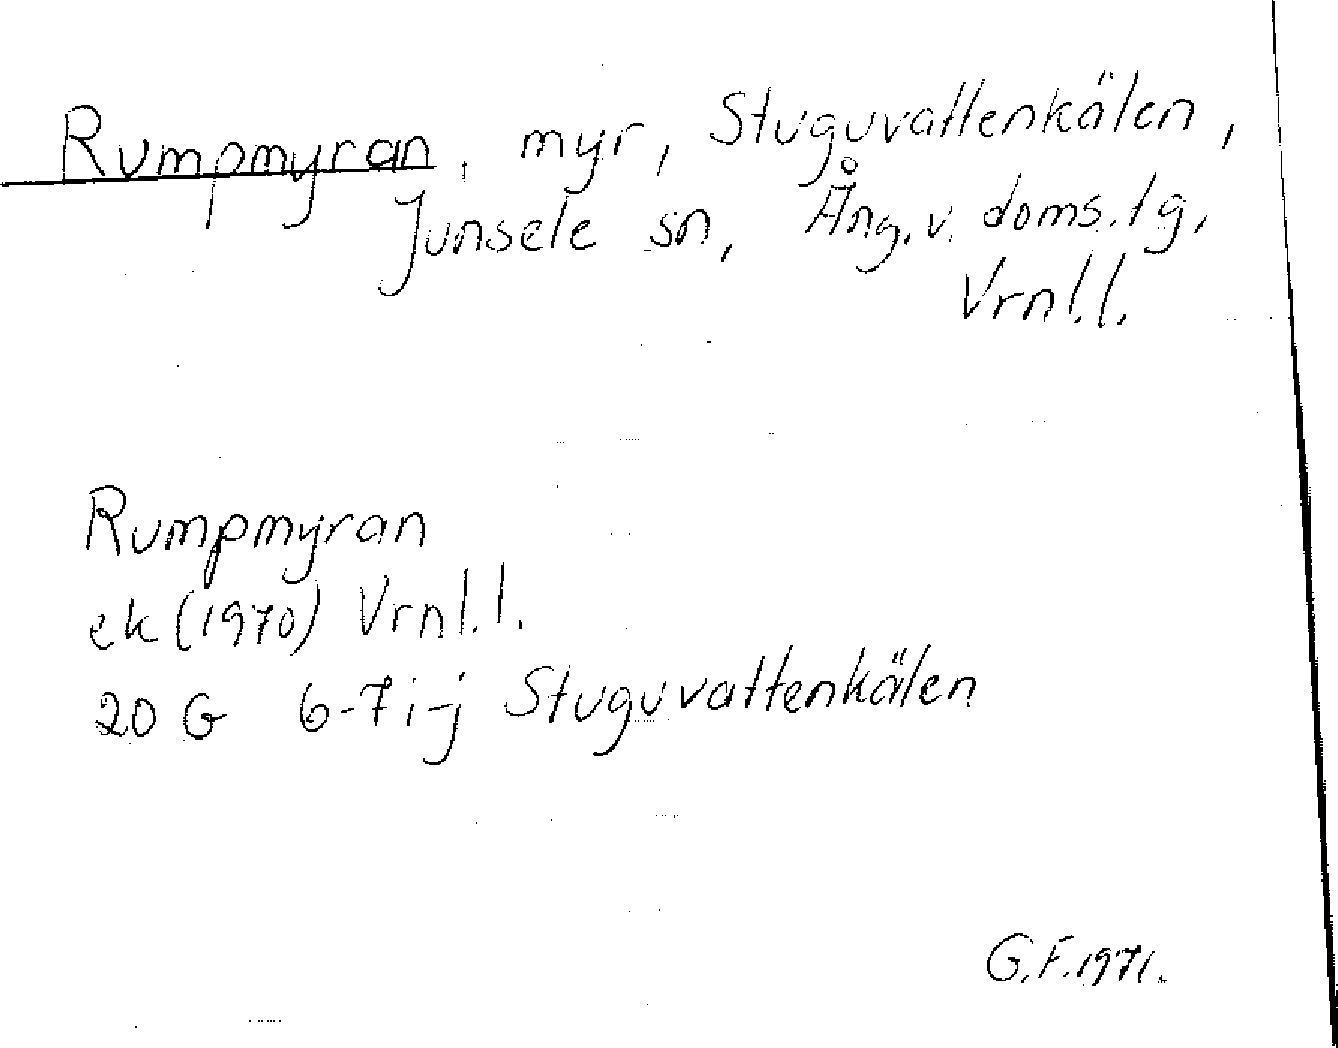 Rumpmyran, myr, Stuguvattenkälen,
Junsele sn, Ång.v. doms.lg,
Vrnl.l.
Rumpmyran
ek (1970) Vrnl.l.
20 G 6-7 i-j Stuguvattenkälen
G.F. 1971.